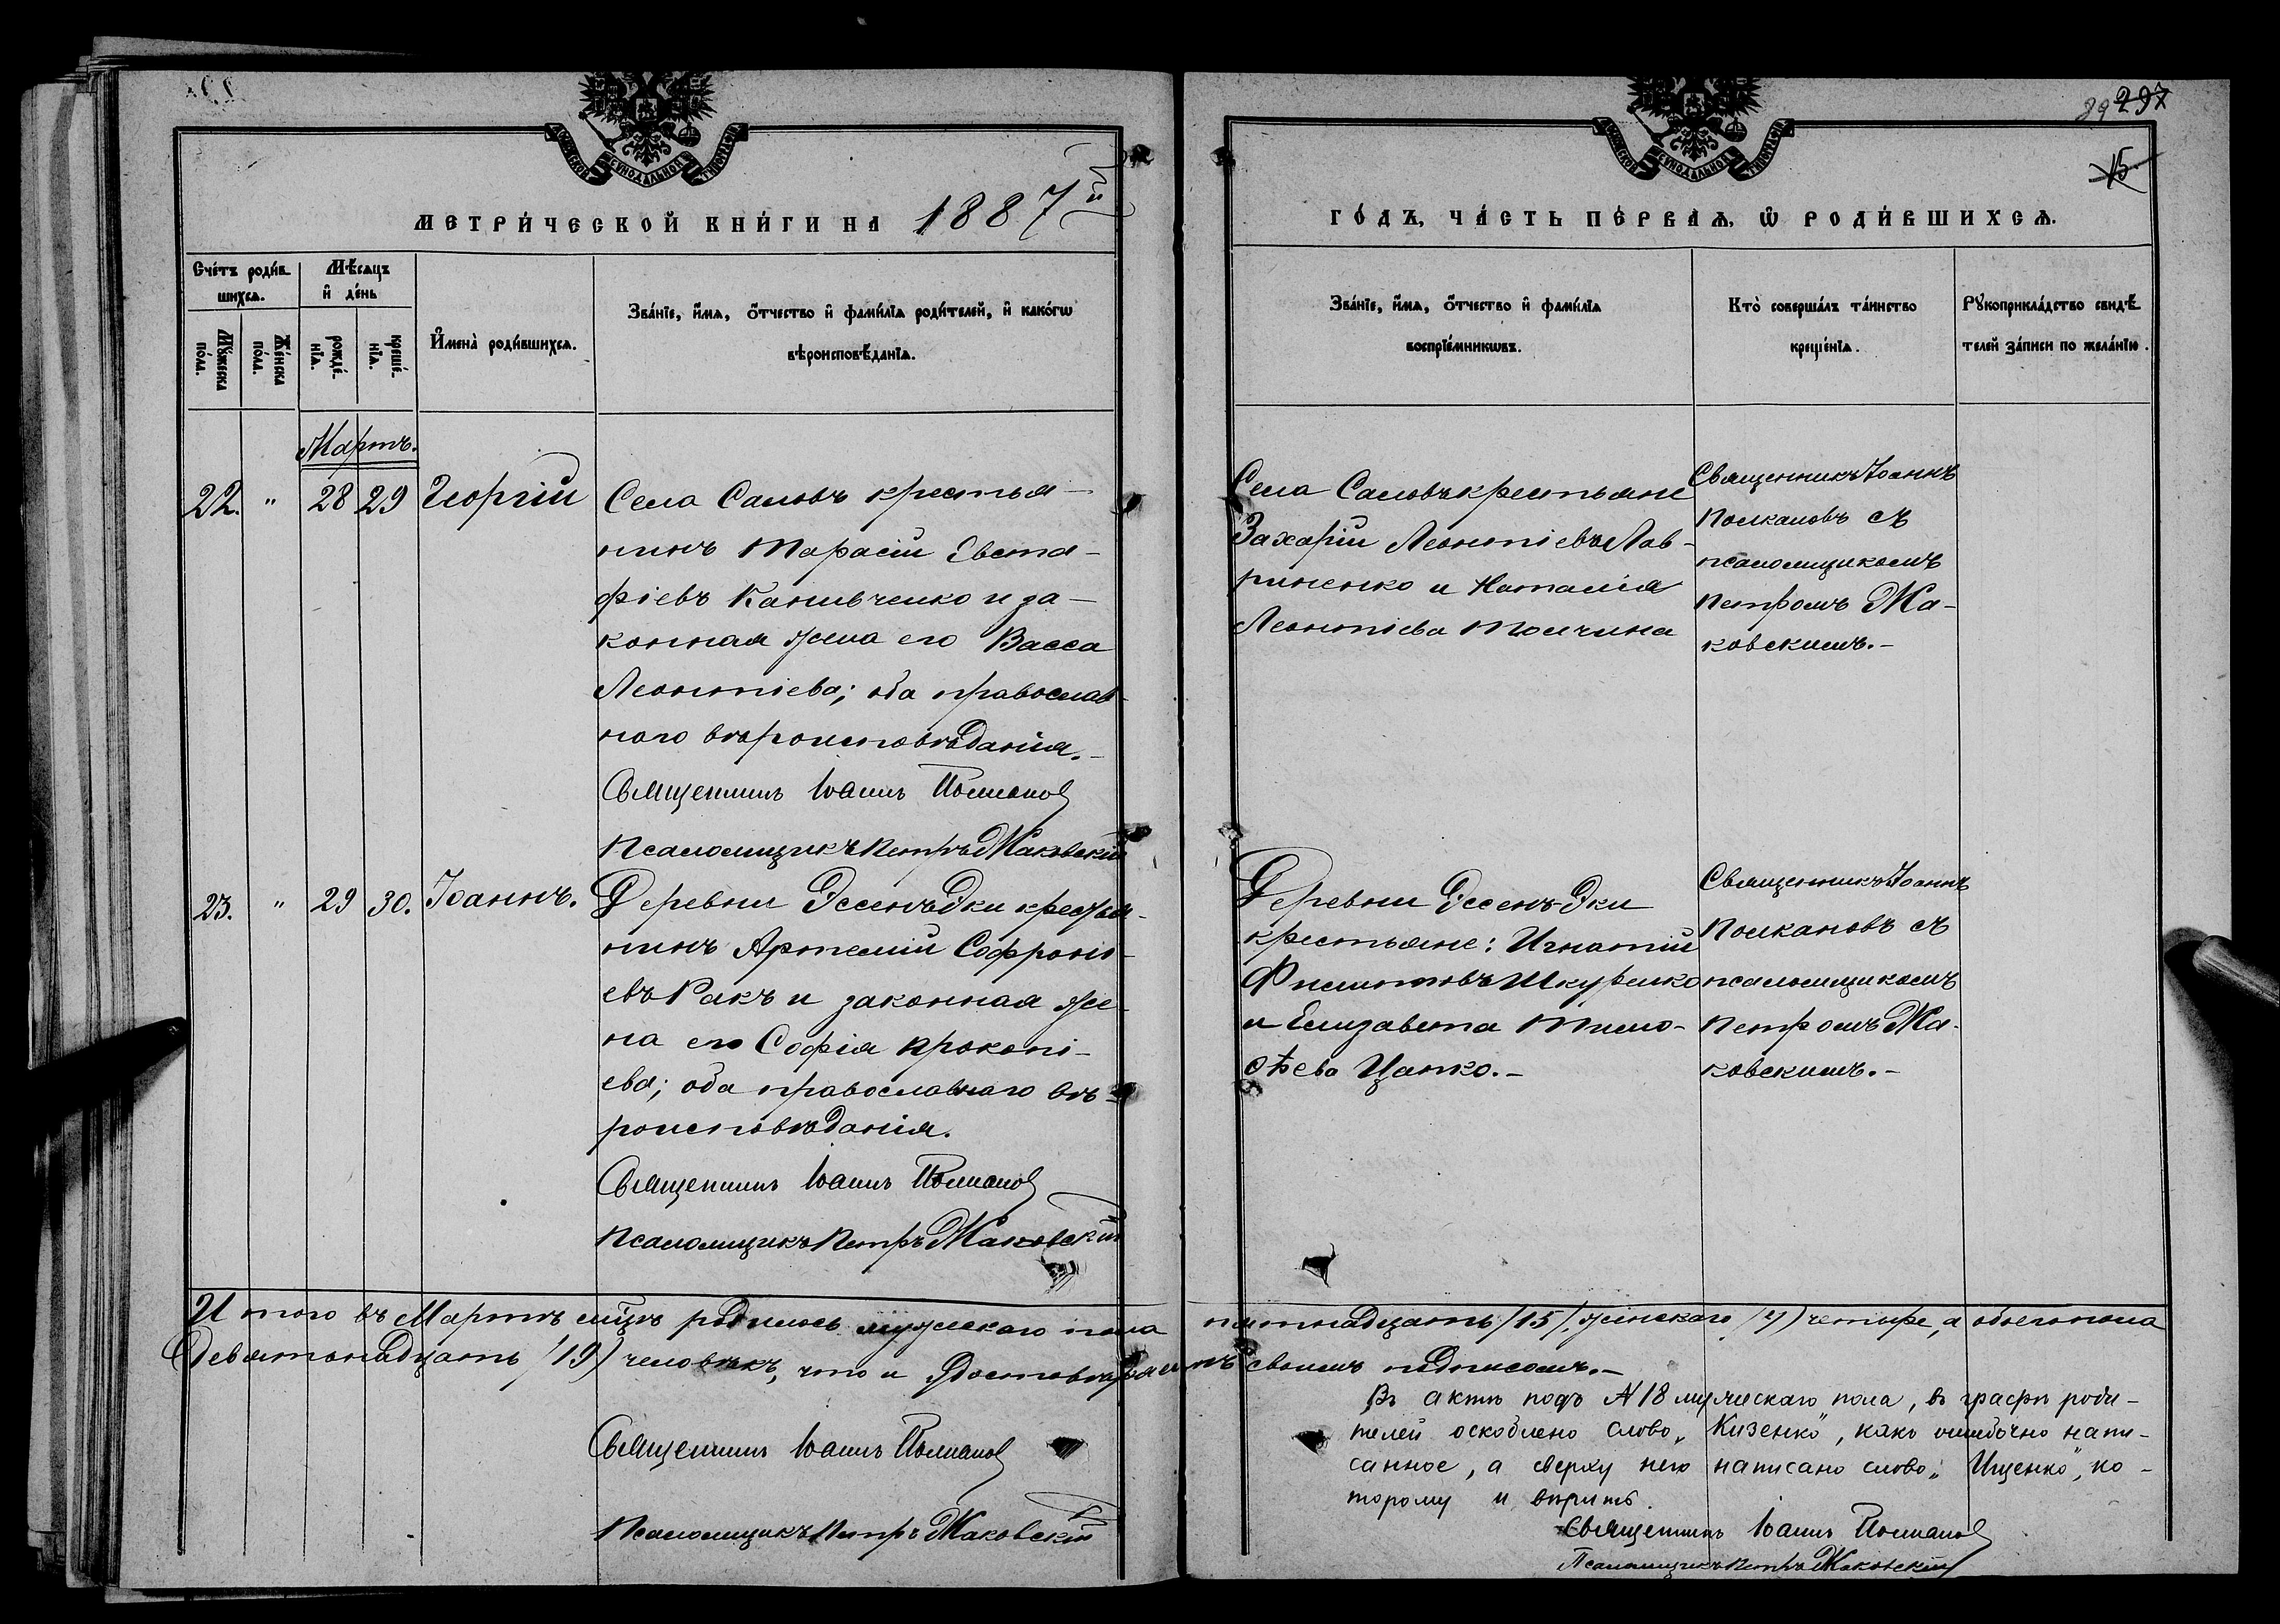 89 297
15
МЕТРИ́ЧЕСКОЙ КНИ́ГИ НА 1887й
ГО́ДЪ, ЧА́СТЬ ПЕ́РВАѦ, Ѡ҆ РОДИ́ВШИХСѦ.
Сче́тъ роди́в-
шихсѧ.
Мѣ́сѧцъ
и҆ де́нь
Мꙋ́жеска
по́ла.
Же́нска
по́ла.
рожде́-
нїѧ.
креще́-
нїѧ.
И҆мена̀ роди́вшихсѧ.
Зва́нїе, и҆́мѧ, ѻ҆́тчество и҆ фами́лїѧ роди́телей, и҆ како́гѡ
вѣроисповѣ́данїѧ.
Зва́нїе, и҆́мѧ, ѻ҆́тчество и҆ фами́лїѧ
воспрїе́мникѡвъ.
Кто̀ соверша́лъ та́инство
креще́нїѧ.
Рꙋкоприкла́дство свидѣ́-
телей за́писи по жела́нїю.
Мартъ.
22. " 28 29 Георгій
Села Саловъ крестья-
нинъ Тарасій Евста-
фіевъ Канивченко и за-
конная жена его Васса
Леонтіева; оба православ-
наго вѣроисповѣданія.-
Священникъ Іоаннъ Полкановъ
Псаломщикъ Петръ Маковскій
Села Саловъ крестьяне
Захарій Леонтіевъ Лав-
риненко и Наталія
Леонтіева Толчина
Священникъ Іоаннъ
Полкановъ съ
псаломщикомъ
Петромъ Ма-
ковскимъ.-
23. " 29 30. Іоаннъ.
Деревни Эссенъ-Эки крестья-
нинъ Артемій Софроні-
евъ Ракъ и законная же-
на его Софія Прокопі-
ева; оба православнаго вѣ-
роисповѣданія.
Священникъ Іоаннъ Полкановъ
Псаломщикъ Петръ Маковскій
Деревни Эссенъ-Эки
крестьяне: Игнатій
Филиповъ Шкуренко
и Елизавета Тимо-
ѳѣева Цапко.-
Священникъ Іоаннъ
Полкановъ съ
псаломщикомъ
Петромъ Ма-
ковскимъ.-
Итого въ Мартѣ мѣцѣ родилось мужескаго пола пятнадцать (15), женскаго (4) четыре, а обоего пола
девятьнадцать (19) человѣкъ, что и удостовѣряемъ своимъ подписомъ.-
Священникъ Іоаннъ Полкановъ
Псаломщикъ Петръ Маковскій
Въ актѣ подъ №18 мужескаго пола, въ графѣ роди-
телей оскоблено слово „Кизенко", какъ ошибочно напи-
санное, а сверху него написано слово „Ищенко", ко-
торому и вѣрить.
Священникъ Іоаннъ Полкановъ
Псаломщикъ Петръ Маковскій